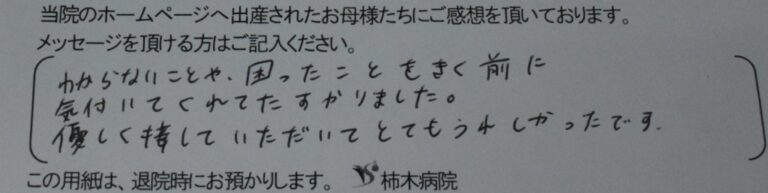 当院のホームページへ出産されたお母様たちにご感想を頂いております。
メッセージを頂ける方はご記入ください。
わからないことや、困ったことをきく前に
気付いてくれてたすかりました。
優しく接していただいてとてもうれしかったです.
この用紙は、退院時にお預かりします。 柿木病院